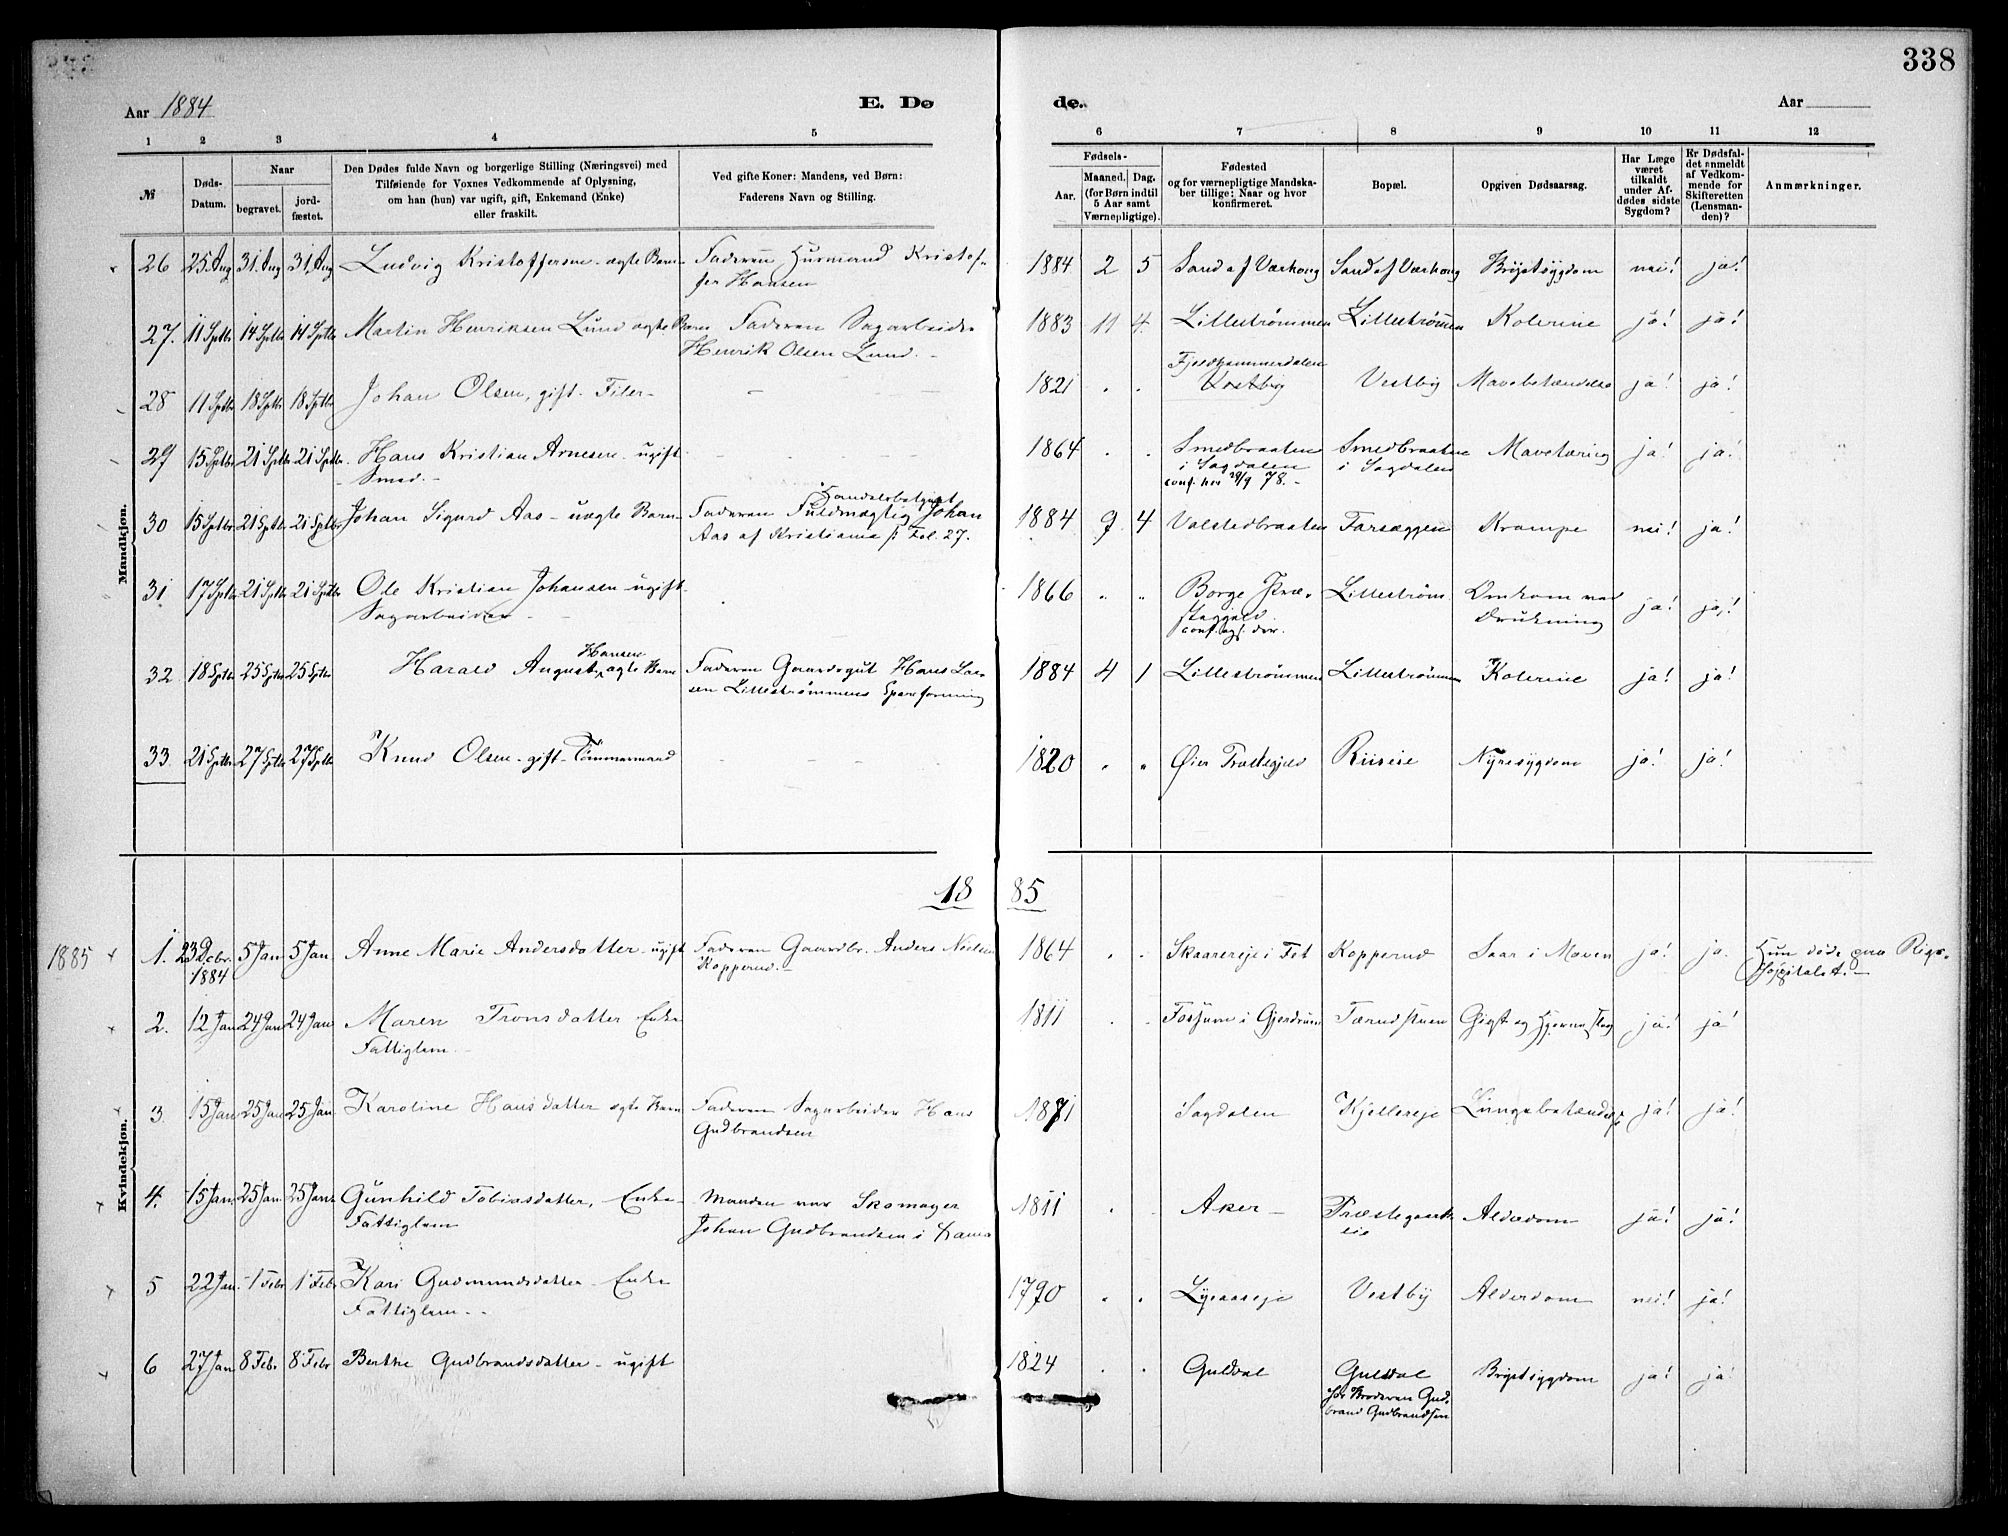 338
Aar 1884
E. Dø de.
Aar
1 2 3 4 5 6 7 8 9 10 11 12
№
Døds-
Datum.
Naar
begravet.
jord-
fæstet.
Den Dødes fulde Navn og borgerlige Stilling (Næringsvei) med
Tilføiende for Voxnes Vedkommende af Oplysning,
om han (hun) var ugift, gift, Enkemand (Enke)
eller fraskilt.
Ved gifte Koner: Mandens, ved Børn:
Faderens Navn og Stilling.
Fødsels-
Aar.
Maaned. Dag.
(for Børn indtil
5 Aar samt
Værnepligtige).
Fødested
og for værnepligtige Mandska-
ber tillige: Naar og hvor
konfirmeret.
Bopæl.
Opgiven Dødsaarsag.
Har Læge
været
tilkaldt
under Af-
dødes sidste
Sygdom?
Er Dødsfal-
det anmeldt
af Vedkom-
mende for
Skifteretten
(Lensman-
den)?
Anmærkninger.
Mandkjøn.
26 25. Aug 31. Aug 31. Aug Ludvig Kristoffersen - ægte Barn - Faderen Husmand Kristof-
fer Hansen
1884 2 5 Sand af Værhoug Sand af Værhoug Brystsygdom nei! ja!
27. 11 Sptbr 14 Sptbr 14 Sptbr Martin Henriksen Lund ægte Barn Faderen Sagarbeider
Henrik Olsen Lund. -
1883 11 4. Lillestrømmen Lillestrømmen Kolerine ja! ja!
28 11 Sptbr 18 Sptbr 18 Sptbr Johan Olsen, gift - Filer -
1821 Fjeldhammerdalen
Vestby Vestby Mavebetændelse ja! ja!
29 15 Sptbr 21 Sptbr 21 Sptbr Hans Kristian Arnesen - ugift
- Smed. -
1864 Smedbraaten
i Sagdalen
conf. her 29/9 78. -
Smedbraaten
i Sagdalen
Mavetæring ja! ja!
30 15 Sptbr 21 Sptbr 21 Sptbr Johan Sigurd Aas - uægte Barn - Faderen Fuldmægtig Johan
Aas af Kristiania Fol. 27.
1884 7 4 Volstedbraaten Farseggen Krampe nei! ja!
31 17 Sptbr 21 Sptbr 21 Sptbr Ole Kristian Johansen - ugift -
Sagarbeider -
1866 Borge Præ-
stegjeld
conf. der.
Lillestrøm. Omkom ved
Drukning
ja! ja!
32 18 Sptbr 25 Sptbr 25 Sptbr Harald August Hansen, ægte Barn Faderen Gaardsgut Hans Lar-
sen Lillestrømmens Spareforening
1884 4 1 Lillestrømmen Lillestrømmen Kolerine ja! ja!
33 21 Sptbr 27 Sptbr 27 Sptbr Knud Olsen - gift - Tømmermand
1820 Øier Præstegjeld Riiseie Nyresygdom ja! ja!
1885
Kvindekjøn.
1885 1. 23 Decbr.
1884
5 Jan 5 Jan Anne Marie Andersdatter - ugift Faderen Gaardbr. Anders Nielsen
Kopperud. -
1864 Skaareeje i Fet Kopperud Saar i Maven ja! ja. Hun døde paa Rigs-
hospitalet. -
2. 12 Jan 24 Jan 24 Jan Maren Tronsdatter Enke
Fattiglem. -
1811 Fossum i Gjerdrum Tærudstuen Gigt og Hjerneslag ja! ja!
3 15 Jan 25 Jan 25 Jan Karoline Hansdatter ægte Barn Faderen Sagarbeider Hans
Gudbrandsen
1871 Sagdalen Kjellereje Lungebetændelse ja! ja!
4. 15 Jan. 25 Jan 25 Jan Gunhild Tobiasdatter, Enke -
Fattiglem
Manden var Skomager
Johan Gudbrandsen i
1811 Aker - Præstegaards-
eie
Alderdom ja! ja!
5 22 Jan. 1 Febr 1 Febr Kari Gudmundsdatter - Enke
Fattiglem - -
1790 Vestby Alderdom nei! ja!
6 27 Jan 8 Febr 8 Febr Berthe Gudbrandsdatter - ugift
1824 Guldal Guldal
hos Broderen Gud-
brand Gudbrandsen
Brystsygdom ja! ja!